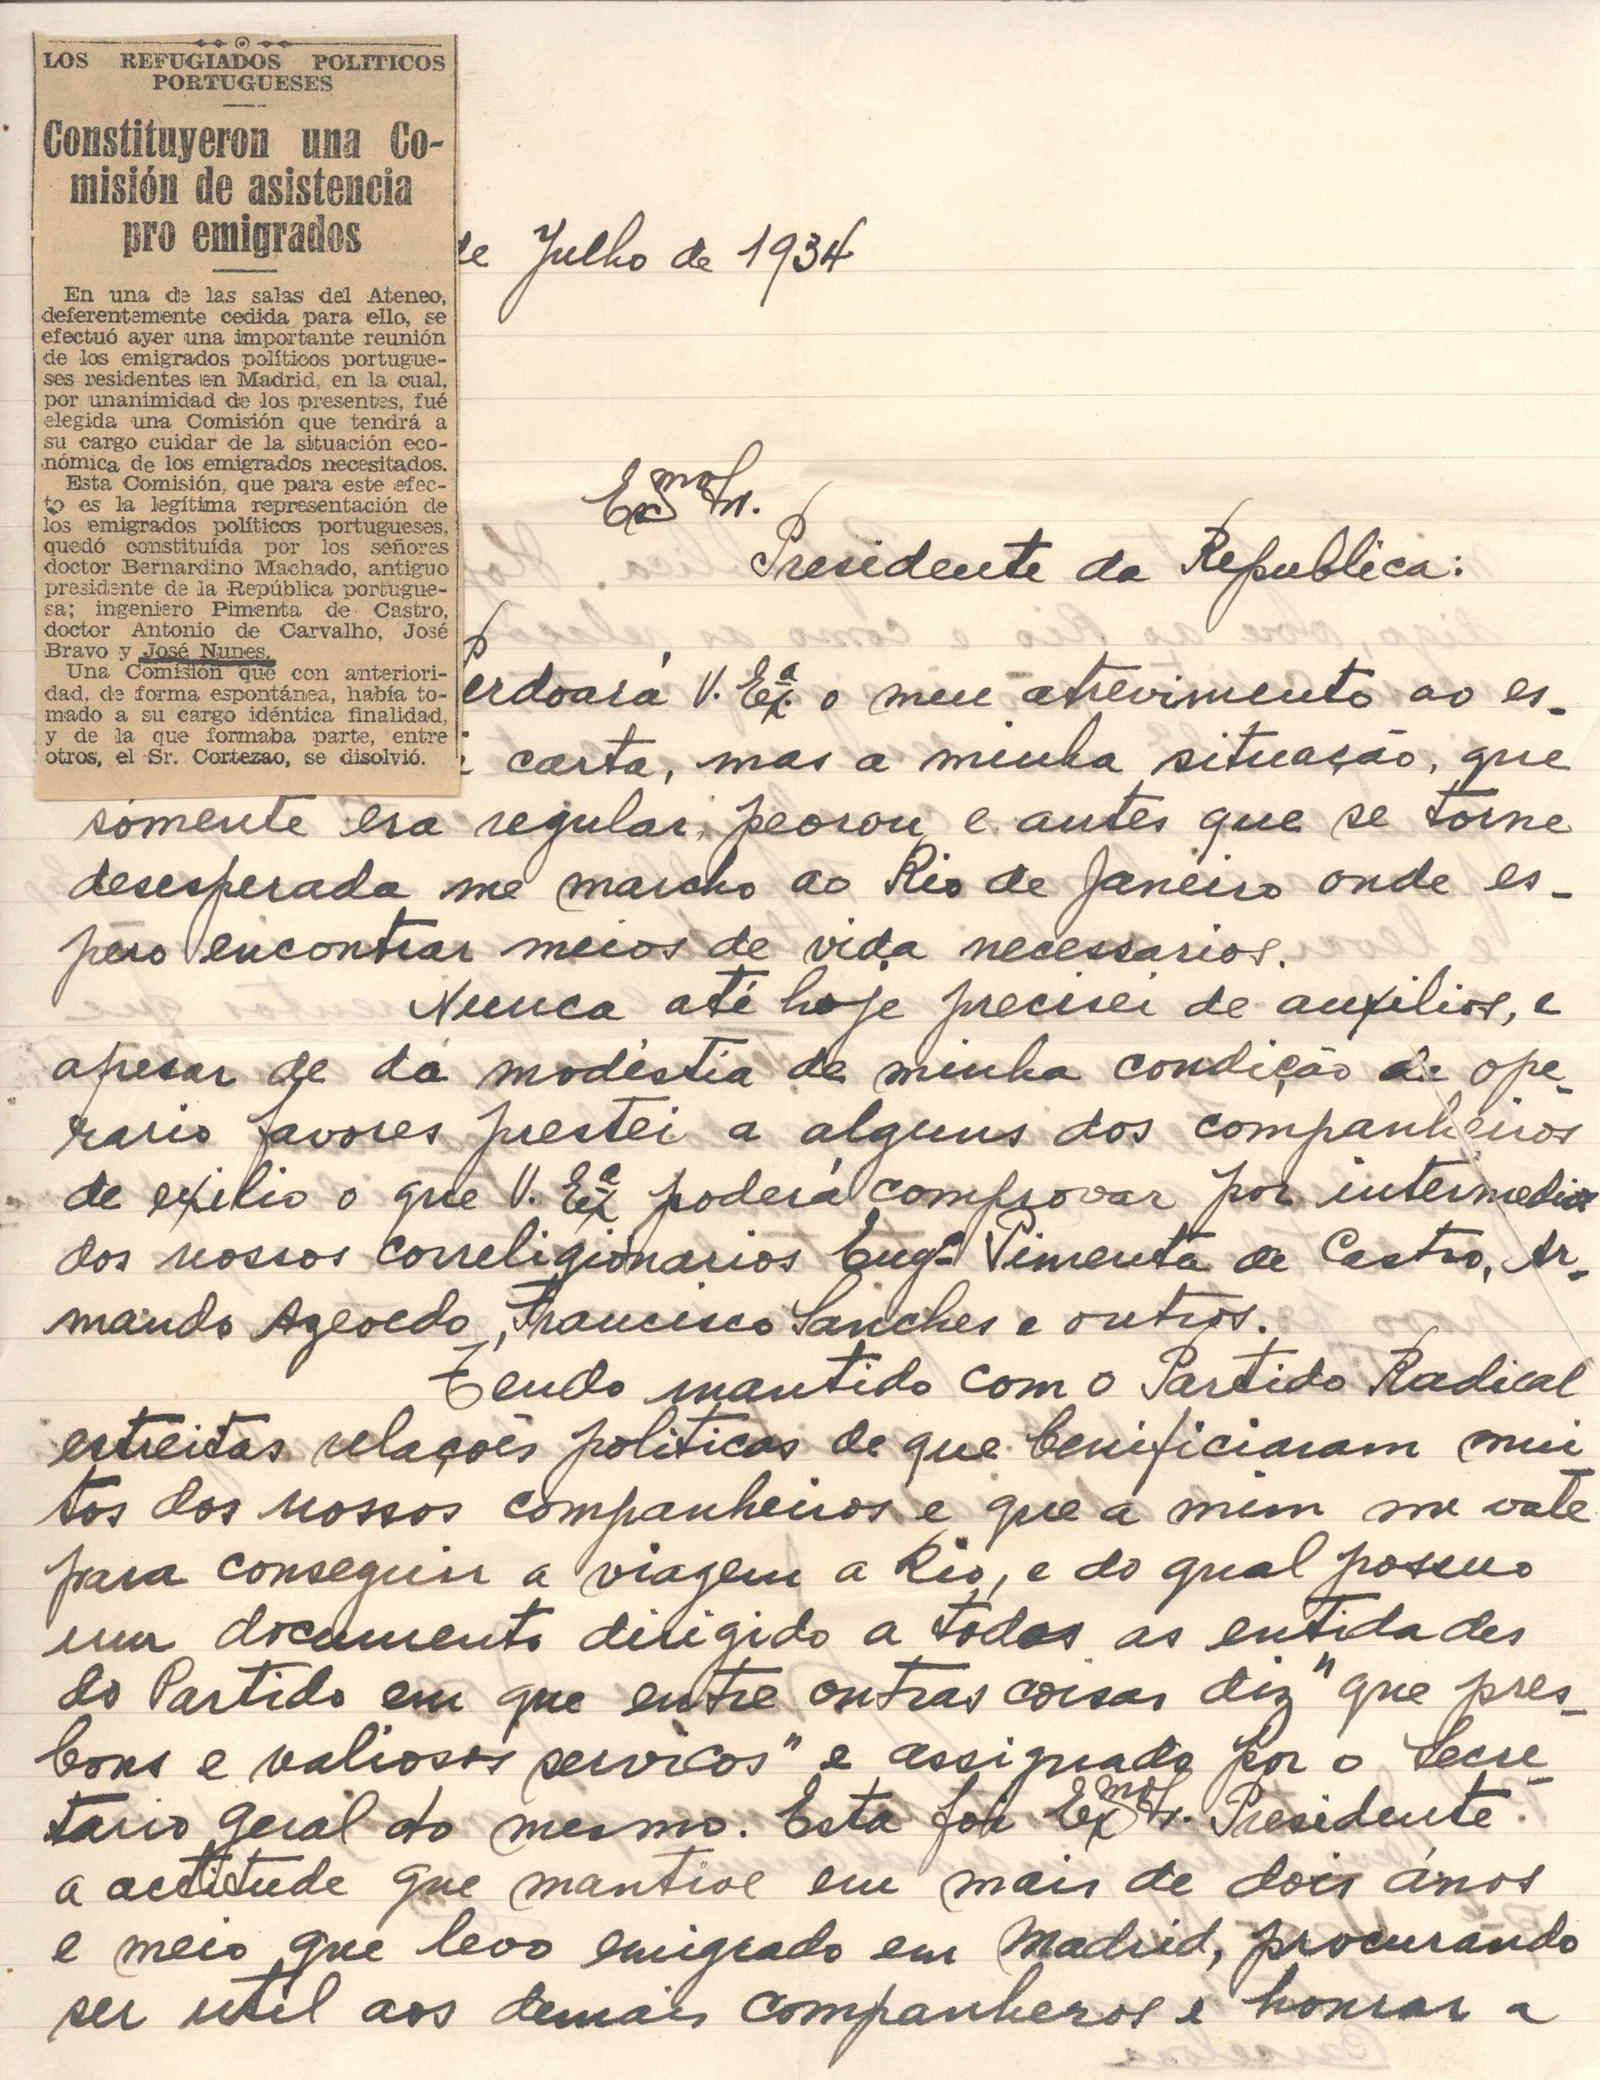 LOS REFUGIADOS POLITICOS
PORTUGUESES
Constituyeron una Co-
misión de asistencia
pro emigrados
En una de las salas del Ateneo,
deferentemente cedida para ello, se
efectuó ayer una importante reunión
de los emigrados políticos portugue-
ses residentes en Madrid, en la cual,
por unanimidad de los presentes, fué
elegida una Comisión que tendrá a
su cargo cuidar de la situación eco-
nómica de los emigrados necesitados.
Esta Comisión, que para este efec-
to es la legítima representación de
los emigrados políticos portugueses,
quedó constituída por los señores
doctor Bernardino Machado, antiguo
presidente de la República portugue-
sa; ingeniero Pimenta de Castro,
doctor Antonio de Carvalho, José
Bravo y José Nunes.
Una Comisión que con anteriori-
dad, de forma espontánea, había to-
mado a su cargo idéntica finalidad,
y de la que formaba parte, entre
otros, el Sr. Cortezao, se disolvió.
de Julho de 1934
Exmo Sr.
Presidente da Republica:
Perdoará V. Exª o meu atrevimento ao es-
carta, mas a minha situação, que
sómente era regular, peorou e antes que se torne
desesperada me marcho ao Rio de Janeiro onde es-
pero encontrar meios de vida necessarios.
Nunca até hoje precisei de auxilios, e
apesar de da modéstia de minha condição de ope-
rario favores prestei a alguns dos companheiros
de exilio o que V. Exª poderá comprovar por intermedio
dos nossos correligionarios Engº Pimenta de Castro, Ar-
mando Azevedo, Francisco Sanches e outros.
Tendo mantido com o Partido Radical
estreitas relações politicas de que benificiaram mui
tos dos nossos companheiros e que a mim me vale
para conseguir a viagem a Rio, e do qual possuo
um documento dirigido a todas as entidades
do Partido em que entre outras coisas diz "que pres-
bons e valiosos serviços" e assignado por o Secre-
tario geral do mesmo. Esta foi Exmo Sr. Presidente
a actitude que mantive em mais de dois ános
e meio que levo emigrado em Madrid, procurando
ser util aos demais companheros e honrar a